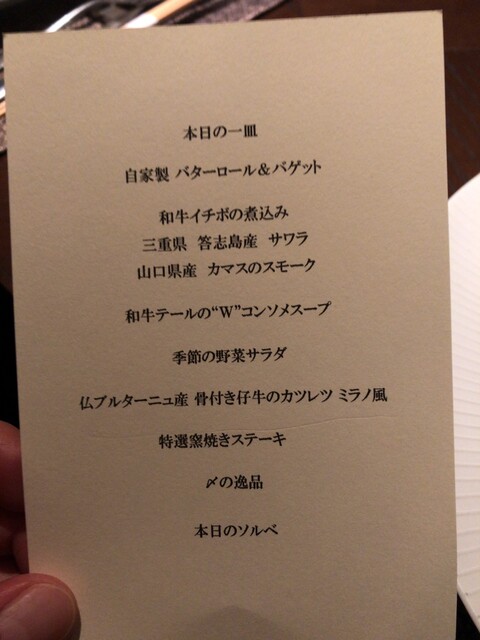 本日の一皿
自家製 バターロール&バゲット
和牛イチボの煮込み
三重県 答志島産 サワラ
山口県産 カマスのスモーク
和牛テールの“W”コンソメスープ
季節の野菜サラダ
仏ブルターニュ産 骨付き仔牛のカツレツ ミラノ風
特選窯焼きステーキ
〆の逸品
本日のソルベ